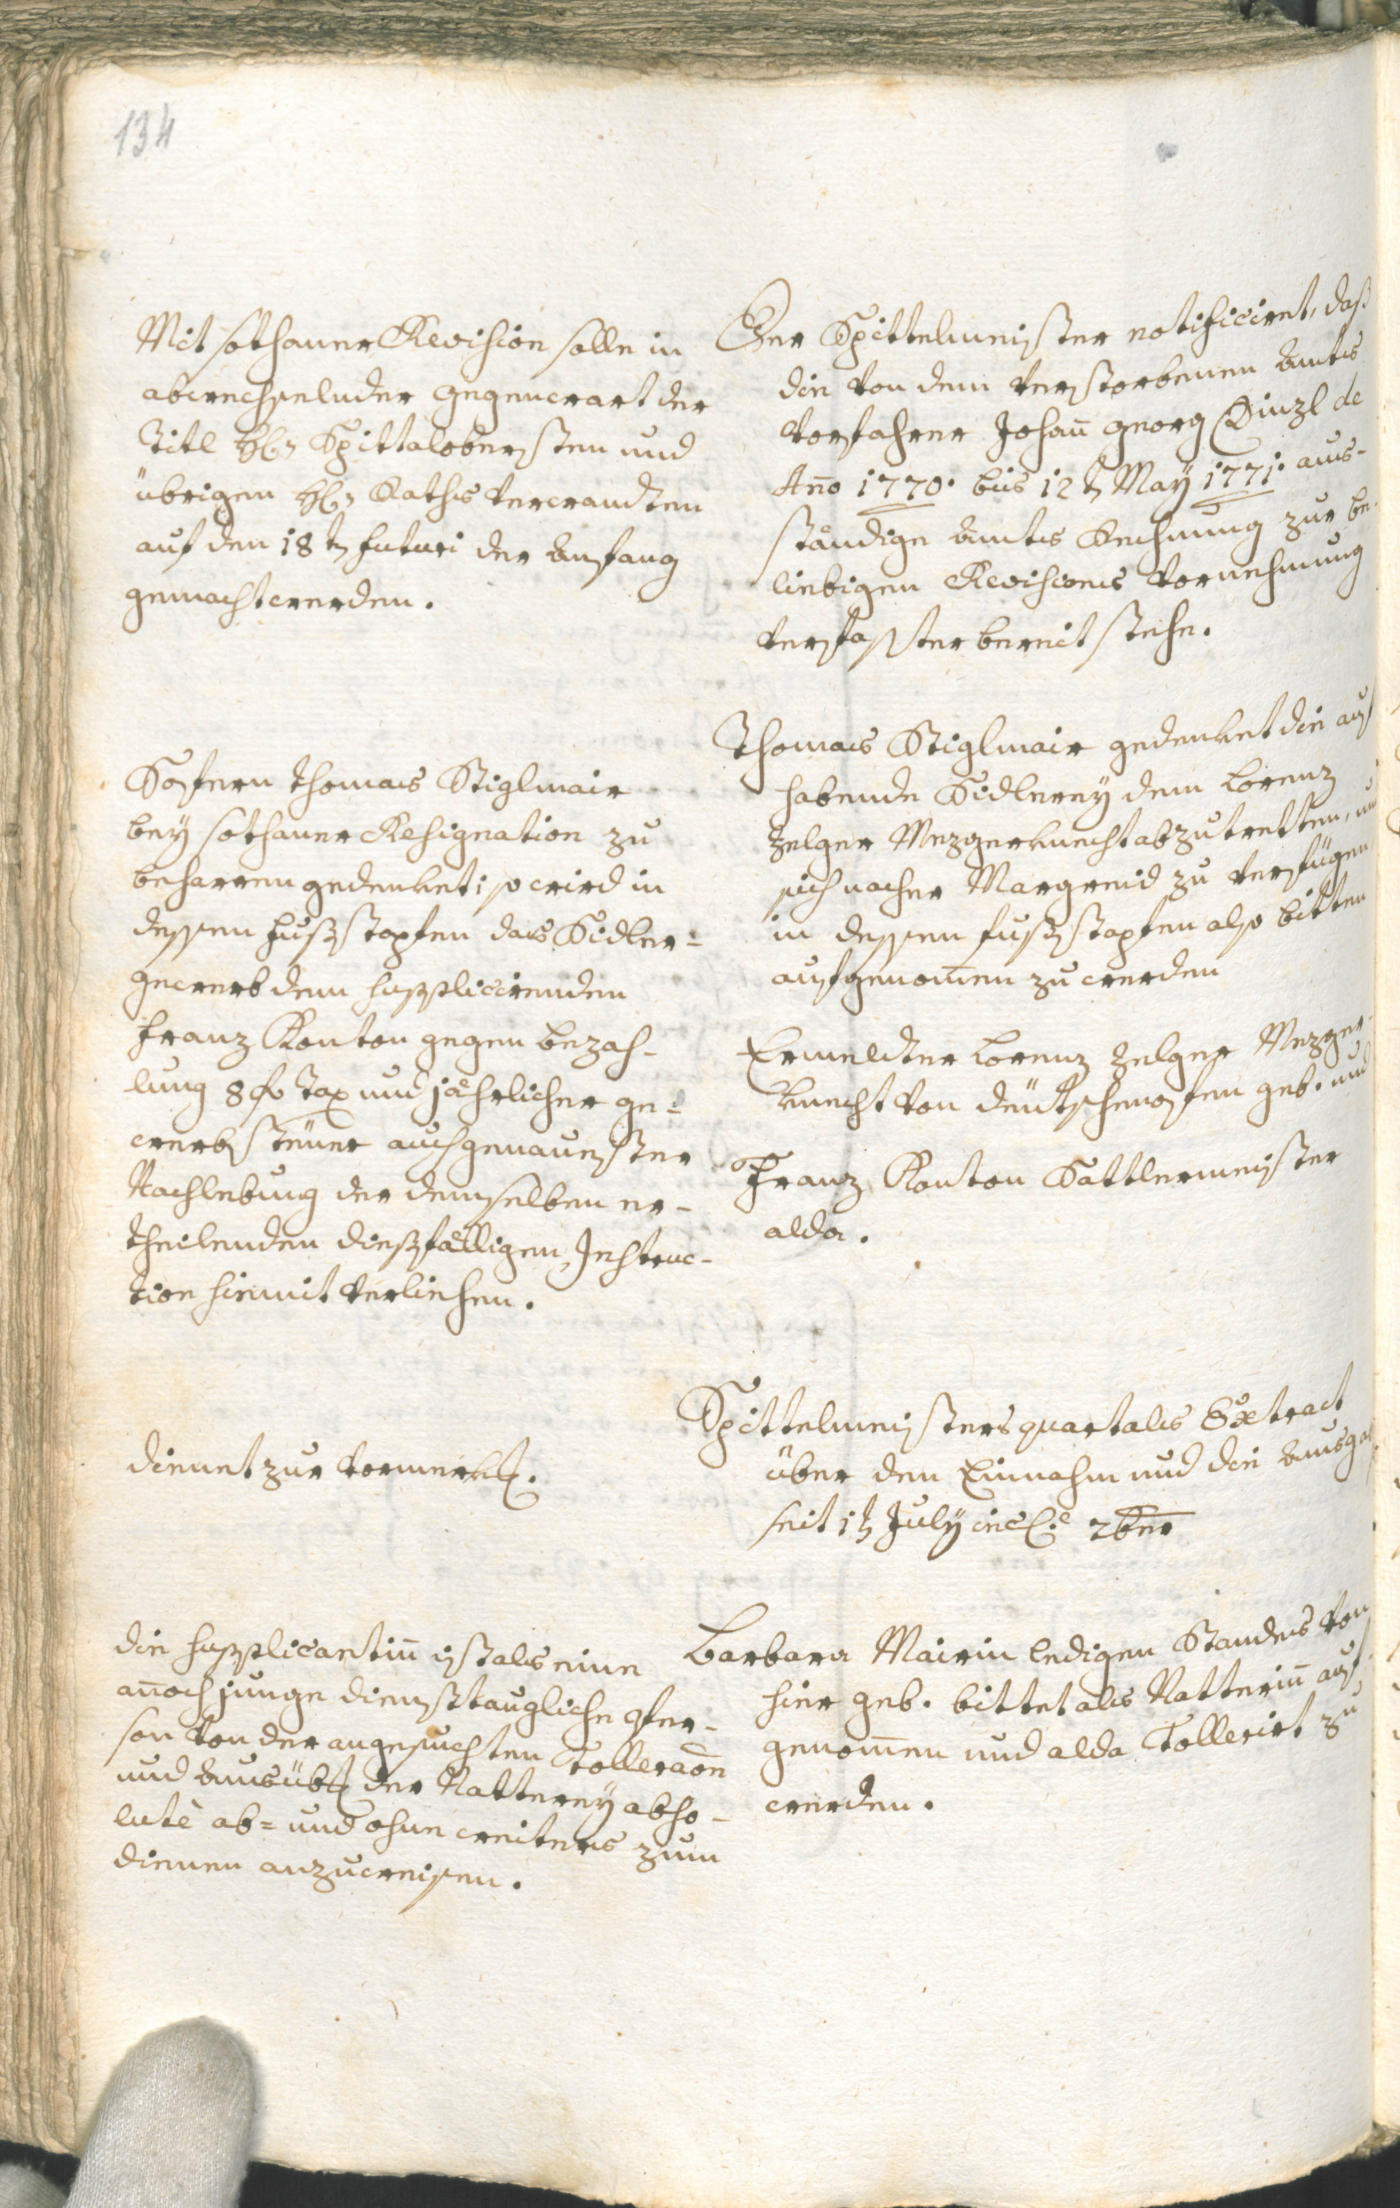 134
Mit sothaner Revision solle in
abwechselnder gegenwart der
Titl H. Spittalobersten und
übrigen H. Raths Verwandten
auf den 18ten futuri der Anfang
gemacht werden.
Der Spittelmeister notificiret, daß
die von dem verstorbenen Amts
Vorfahrer Johann Georg Dinzl de
Anno 1770. bis 12ten May 1771. aus-
ständige Amts Rechnung zur be-
liebigen Revisions Vornehmung
verfasster bereit stehe.
Sofern Thomas Stiglmair
bey sothaner Resignation zu
beharren gedenket; so wird in
dessen fußstapfen das Sidler-
gewerb dem supplicirenden
Franz Konton gegen bezah-
lung 8 fl Tax und jährlicher ge-
werbsteuer auch genauester
Nachlebung der demselben er-
theilenden dießfälligen Instruc-
tion hiemit verliehen.
Thomas Stiglmair gedenket die auf
habende Sidlerey dem Lorenz
Zelger Mezgerknecht abzutretten, und
sich nacher Margreid zu verfügen
in dessen fußstapfen also bitten
aufgenomen zu werden
Ermeldter Lorenz Zelger Mezger-
knecht von Deütschenofen geb. und
Franz Konton Sattlermeister
alda.
dienet zur vormerkg.
Spittelmeisters quartals Extract
über den Einnahm und die Ausgab
seit 1ten July incl. 7ber
die supplicantin ist als eine
annoch junge diensttaugliche Per-
son von der angesuchten Tolleraon
und Ausübg der Natterey abso-
lutè ab- und ohne weiters zum
dienen anzuweisen.
Barbara Mairin ledigen Standes von
hier geb. bittet als Natterin auf-
genomen und alda Tollerirt zu
werden.